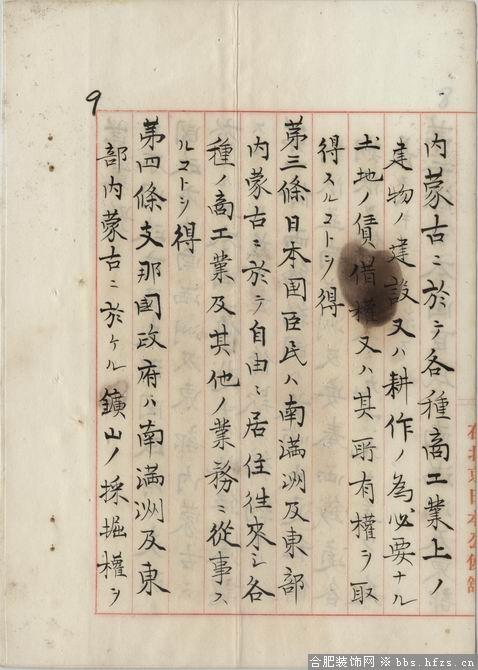 9
内蒙古ニ於テ各種商工業上ノ
建物ノ建設又ハ耕作ノ為必要ナル
土地ノ賃借權又ハ其所有權ヲ取
得スルコトヲ得
第三條日本國臣民ハ南滿洲及東部
内蒙古ニ於テ自由ニ居住往來シ各
種ノ商工業及其他ノ業務ニ從事ス
ルコトヲ得
第四條支那國政府ハ南滿洲及東
部内蒙古ニ於ケル鑛山ノ採堀權ヲ
在北京日本公使館
合肥装饰网 ※ bbs.hfzs.cn